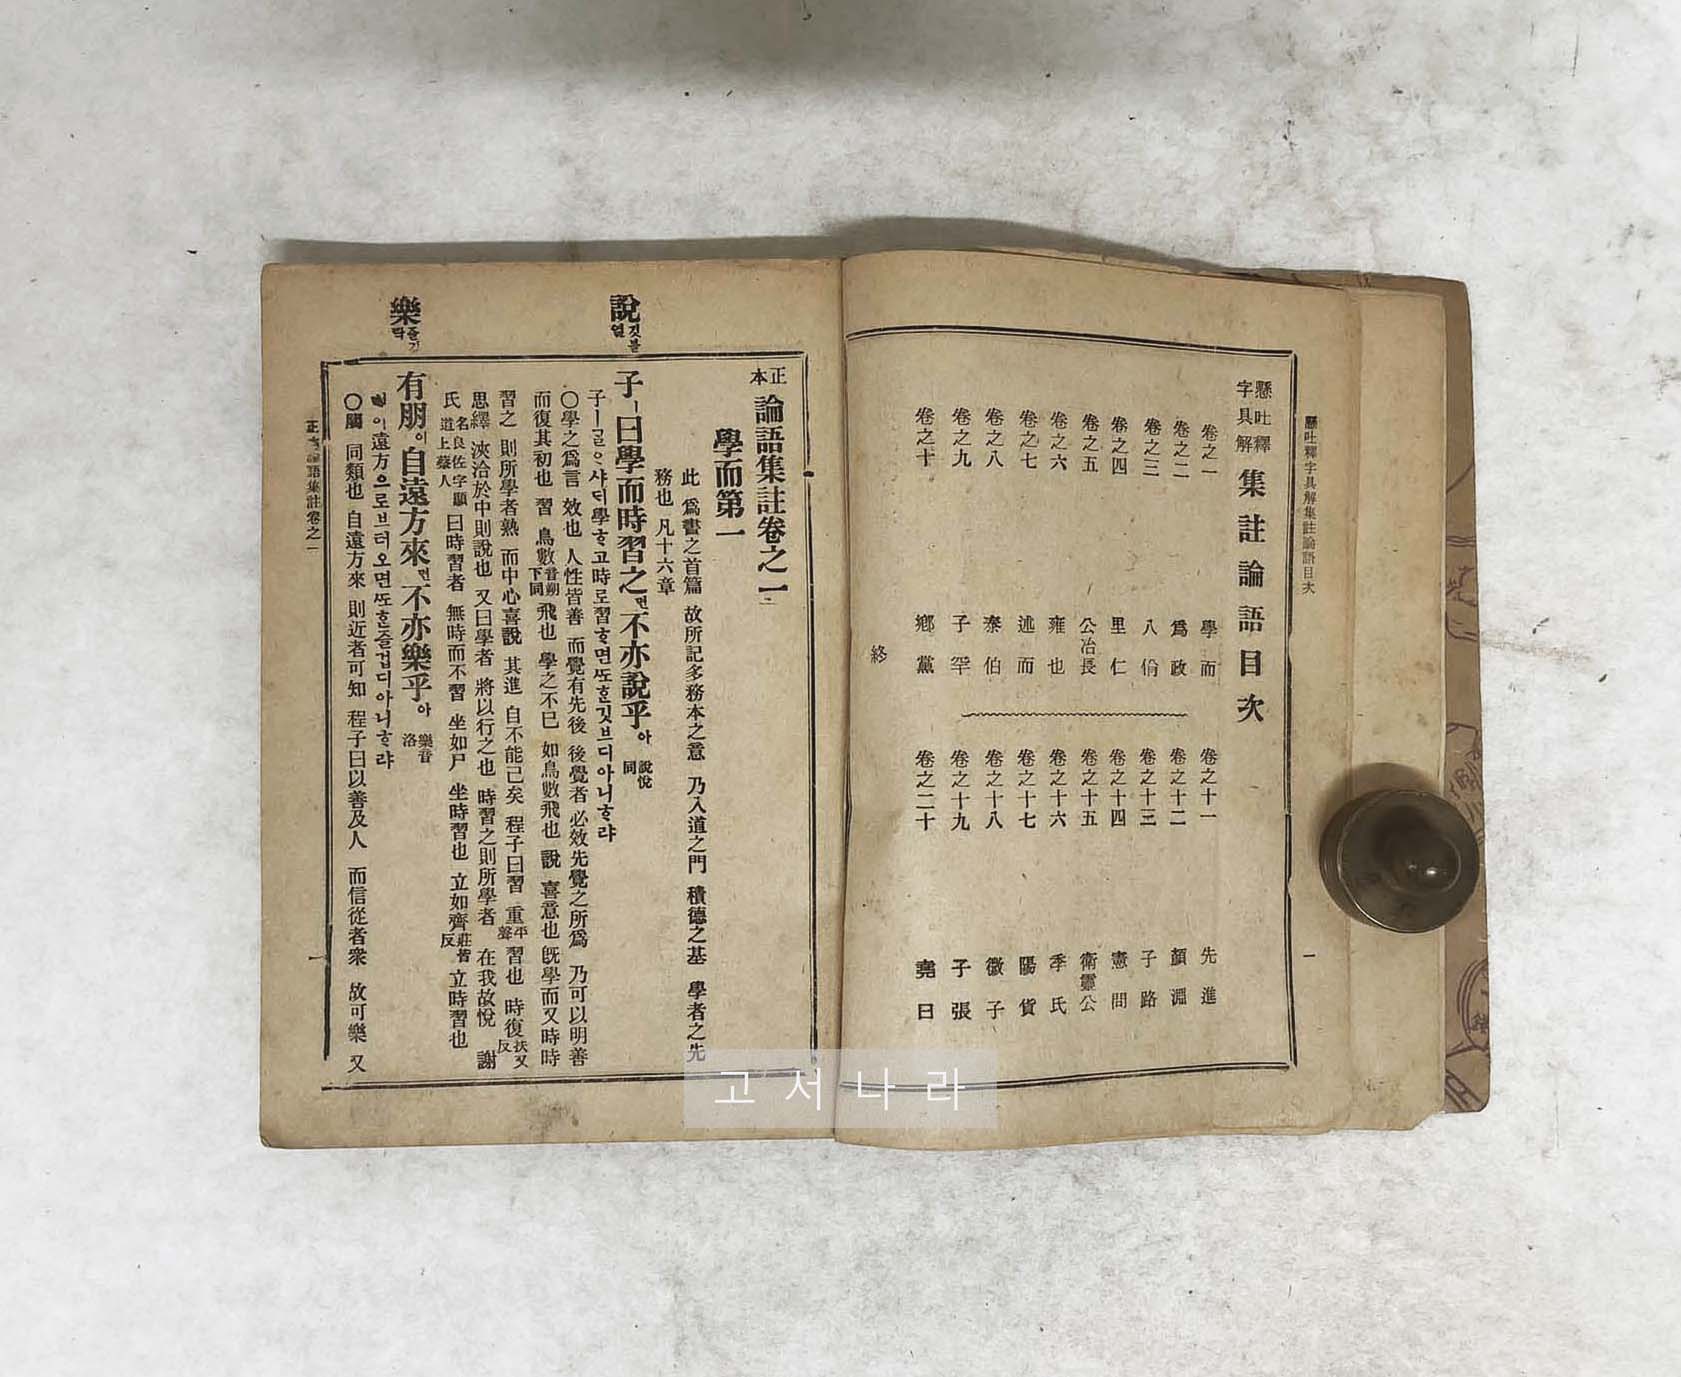 懸吐釋字具解集註論語目次
一
懸吐釋
字具解
集註論語目次
卷之一 學而
卷之二 爲政
卷之三 八佾
卷之四 里仁
卷之五 公冶長
卷之六 雍也
卷之七 述而
卷之八 泰伯
卷之九 子罕
卷之十 鄕黨
卷之十一 先進
卷之十二 顏淵
卷之十三 子路
卷之十四 憲問
卷之十五 衛靈公
卷之十六 季氏
卷之十七 陽貨
卷之十八 微子
卷之十九 子張
卷之二十 堯曰
終
正本 論語集註卷之一
學而第一
此爲書之首篇 故所記多務本之意 乃入道之門 積德之基 學者之先
務也 凡十六章
說 깃블열
子ㅣ曰學而時習之면不亦說乎아 說悅同
子ㅣ글ᄋᆞ샤ᄃᆡ學ᄒᆞ고時로習ᄒᆞ면ᄯᅩᄒᆞᆫ깃브디아니ᄒᆞ랴
○學之爲言 效也 人性皆善 而覺有先後 後覺者 必效先覺之所爲 乃可以明善
而復其初也 習 鳥數音朔下同飛也 學之不已 如鳥數飛也 說 喜意也 旣學而又時時
習之 則所學者熟 而中心喜說 其進 自不能已矣 程子曰習 重平聲習也 時復扶又反
思繹 浹洽於中則說也 又曰學者 將以行之也 時習之則所學者 在我故悅 謝
氏名良佐字顯道上蔡人曰時習者 無時而不習 坐如尸 坐時習也 立如齊莊皆反立時習也
樂 즐길락
有朋이自遠方來면不亦樂乎아 樂音洛
遠方으로브터오면ᄯᅩᄒᆞᆫ즐겁디아니ᄒᆞ랴
○朋 同類也 自遠方來 則近者可知 程子曰以善及人 而信從者衆 故可樂 又
論語集註卷之一
一
고서나라